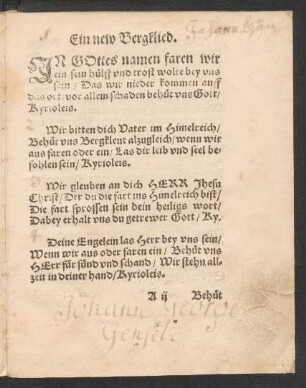 Ein new Bergklied.
IN GOttes namen faren wir
ein sein hülff vnd trost wolte bey vns
sein / Das wir nieder kommen auff
das ort / vor allem schaden behüt vns Gott /
Kyrioleis.
Wir bitten dich Vater im Himelreich /
Behüt vns Bergkleut alzugleich / wenn wir
aus faren oder ein / Las dir leib vnd seel be-
fohlen sein / Kyrioleis.
Wir gleuben an dich HERR Jhesu
Christ / Der du die fart ins Himelreich bist /
Die fart sprossen sein dein heiligs wort /
Dabey erhalt vns du getrewer Gott / Ky.
Deine Engelein las Herr bey vns sein /
Wenn wir aus oder faren ein / Behüt vns
HErr für sünd vnd schand / Wir stehn all-
zeit in deiner hand / Kyrioleis.
A ij Behüt
Johann George
Gensel.